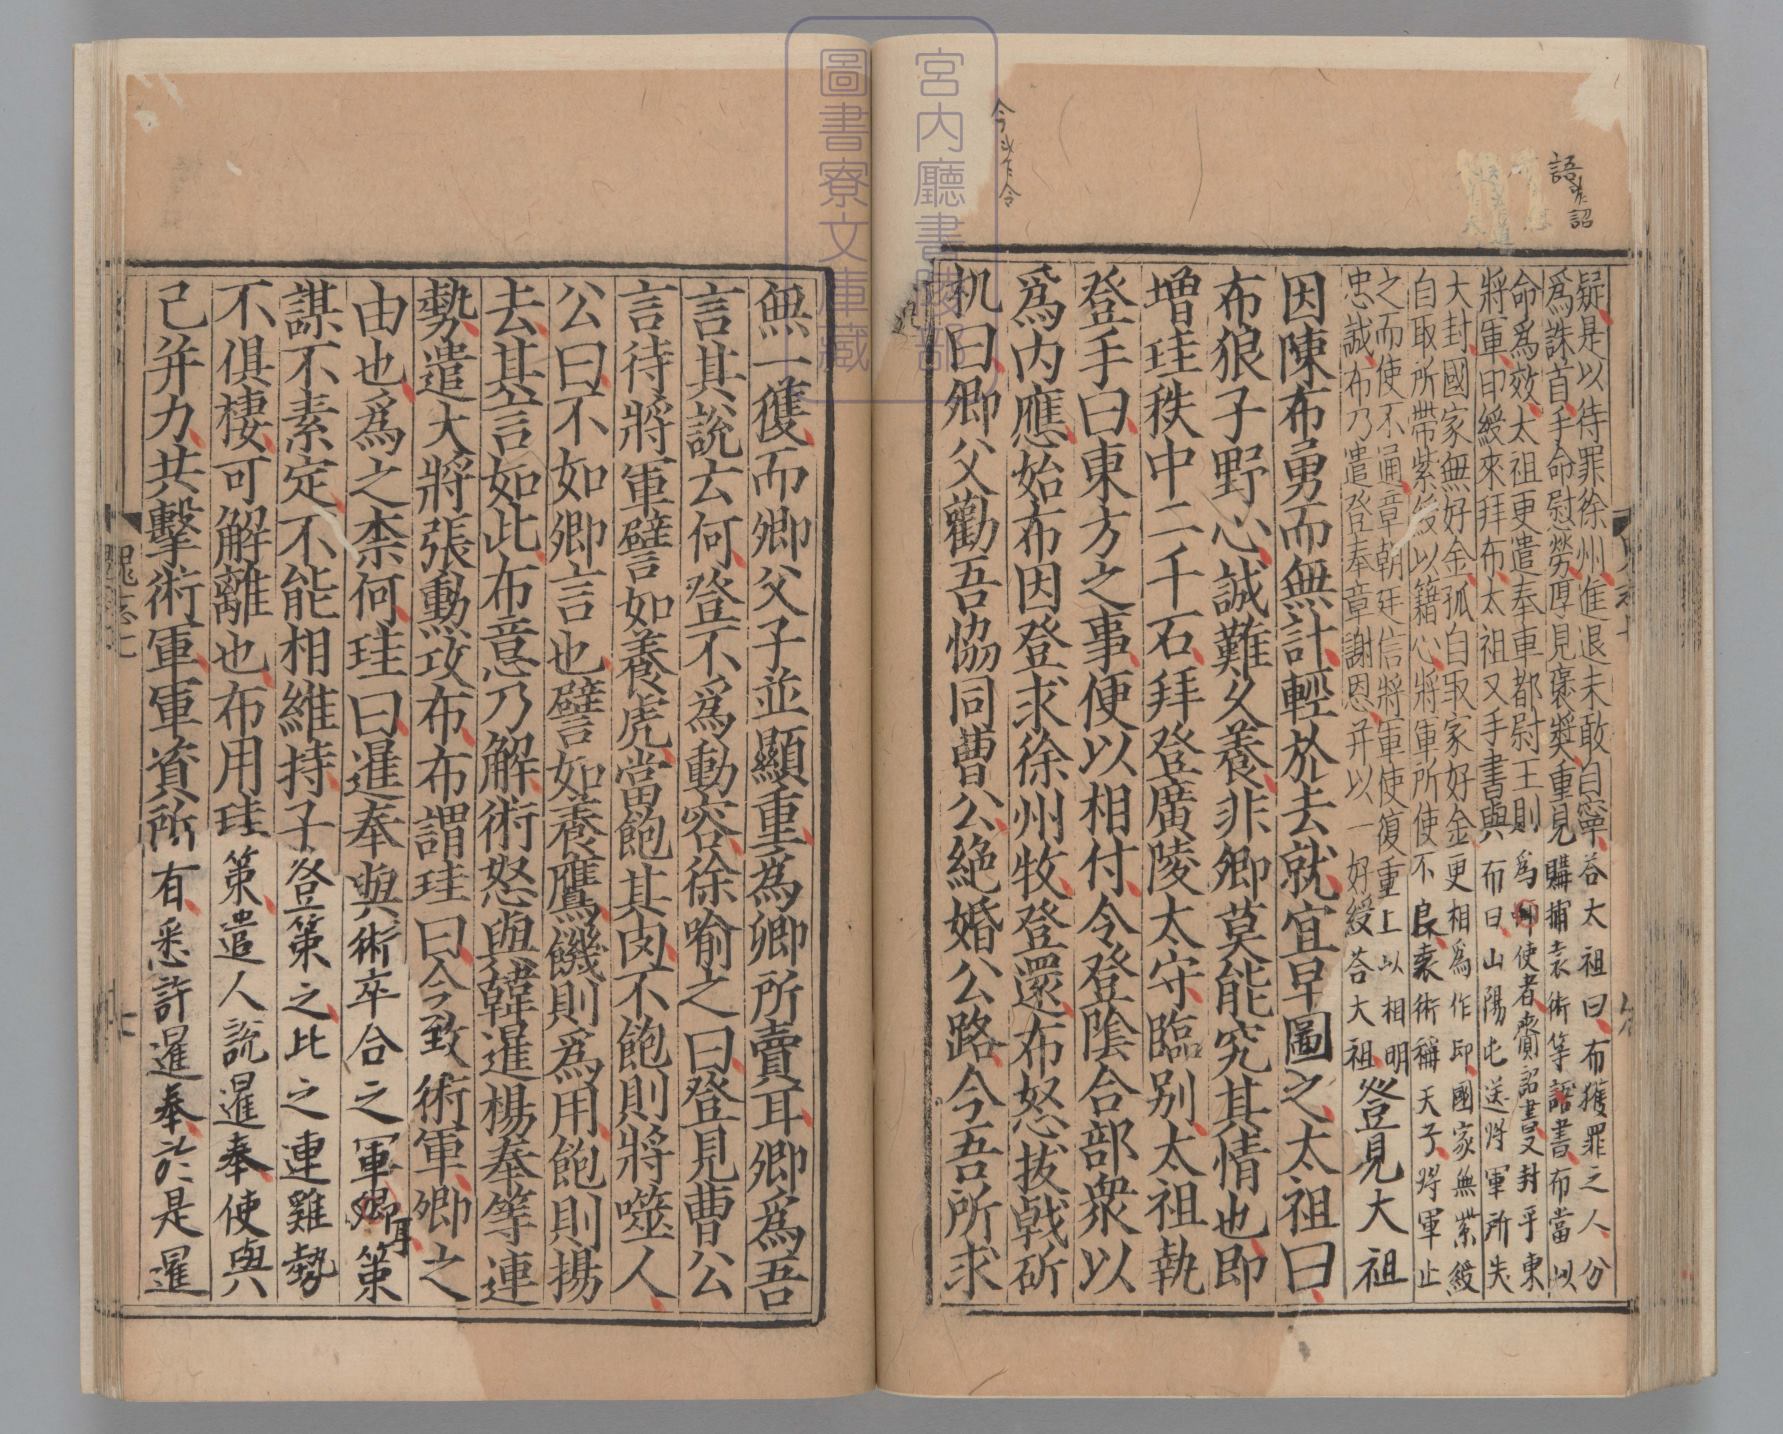 語當作詔
疑是以待罪徐州進退未敢自寧荅太祖曰布獲罪之人分
爲誅首手命慰勞厚見褒奬重見購捕袁術等詔書布當以
命爲效太祖更遣奉車都尉王則爲使者齎詔書又封平東
將軍印綬來拜布太祖又手書與布曰山陽屯送將軍所失
大封國家無好金孤自取家好金更相爲作印國家無紫綬
自取所帶紫綬以籍心將軍所使不良袁術稱天子將軍止
之而使不通章朝廷信將軍使復重上以相明
忠誠布乃遣登奉章謝恩并以一好綬荅太祖登見太祖
因陳布勇而無計輕於去就宜早圖之太祖曰
布狼子野心誠難久養非卿莫能究其情也即
增珪秩中二千石拜登廣陵太守臨别太祖執
登手曰東方之事便以相付令登陰合部衆以
爲内應始布因登求徐州牧登還布怒拔戟斫
机曰卿父勸吾協同曹公絶婚公路今吾所求
今當作令
無一獲而卿父子並顯重爲卿所賣耳卿爲吾
言其説云何登不爲動容徐喻之曰登見曹公
言待將軍譬如養虎當飽其肉不飽則將噬人
公曰不如卿言也譬如養鷹饑則爲用飽則揚
去其言如此布意乃解術怒與韓暹楊奉等連
勢遣大將張勳攻布布謂珪曰今致術軍卿之
由也爲之柰何珪曰暹奉與術卒合之軍耳策
謀不素定不能相維持子登策之比之連雞勢
不俱棲可解離也布用珪策遣人説暹奉使與
己并力共擊術軍軍資所有悉許暹奉於是暹
魏志七
宮内廳書陵部
圖書寮文庫藏